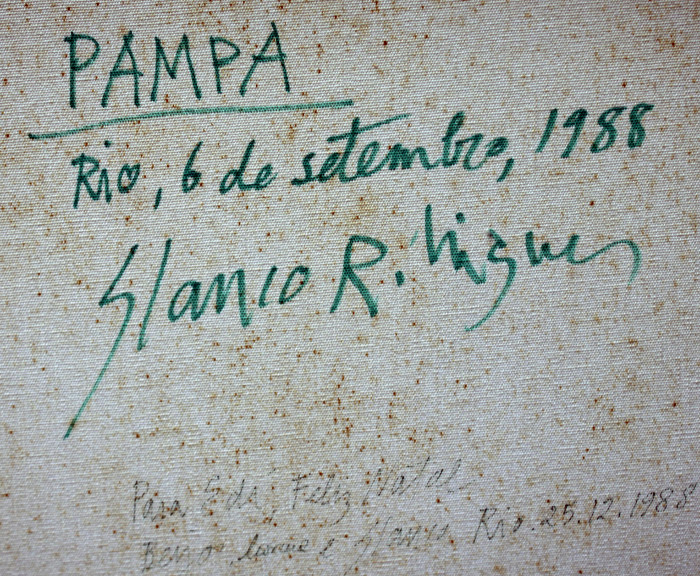 PAMPA
Rio, 6 de setembro, 1988
Glauco Rodrigues
Para Feliz Natal
e Glauco Rio. 25.12.1988